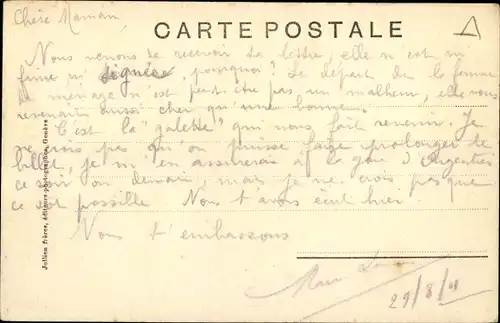 Chère Maman,
CARTE POSTALE
Nous venons de recevoir ta lettre, elle n est ni
ni signée, pourquoi? Le départ de la femme
de ménage n'est peut être pas un malheur, elle nous
revenait aussi cher qu'une bonne.
C'est la "galette" qui nous fait revenir. Je
ne crois pas qu'on puisse faire prolonger le
billet, je m'en assurerais à la gare d'Argentier
ce soir ou demain, mais je ne crois pas que
ce soit possible Nous t avons écrit hier.
Nous t'embrassons
29/8/11
Jullien frères, éditeurs-photographes, Genève